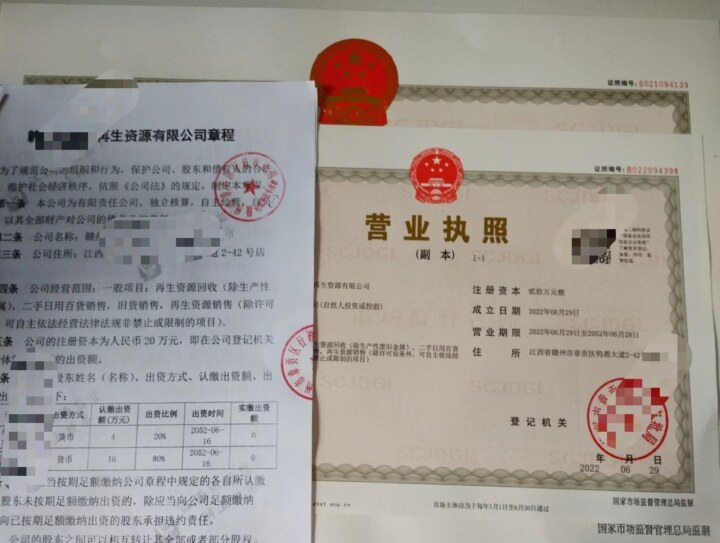 再生资源有限公司章程
为了规范公司的组织和行为,保护公司、股东和债权人的合
维护社会经济秩序,依照《公司法》的规定,制定本章
一条 本公司为有限责任公司,独立核算,自主经营,自
以其全部财产对公司的
第二条 公司名称:赣
三条 公司住所:江西
道2-42号店
四条 公司经营范围:一般项目:再生资源回收(除生产性
属),二手日用百货销售,旧货销售,再生资源销售(除许可
可自主依法经营法律法规非禁止或限制的项目)。
条 公司的注册资本为人民币20万元,即在公司登记机关
的出资额。
条
股东姓名(名称)、出资方式、认缴出资额、出
下:
出资方式
认缴出资额(万元)
出资比例
出资时间
实缴出资额
货币
4
20%
2052-06-16
0
货币
16
80%
2052-06-16
0
当按期足额缴纳公司章程中规定的各自所认缴
股东未按期足额缴纳出资的,除应当向公司足额缴纳
向已按期足额缴纳出资的股东承担违约责任。
公司的股东之间可以相互转让其全部或者部分股权。
证照编号:6021094139
证照编号:B022094398
营业执照
(副本)
1-1
再生资源有限公司
(自然人投资或控股)
资源回收(除生产性废旧金属),二手日用百货
,再生资源销售(除许可业务外,可自主依法经
止或限制的项目)
注册资本 贰拾万元整
成立日期 2022年06月29日
营业期限 2022年06月29日至2052年06月28日
住所 江西省赣州市章贡区钨都大道2-42
登记机关
2022年06月29日
市场主体应当于每年1月1日至6月30日通过
国家市场监督管理总局监制
国家市场监督管理总局监制